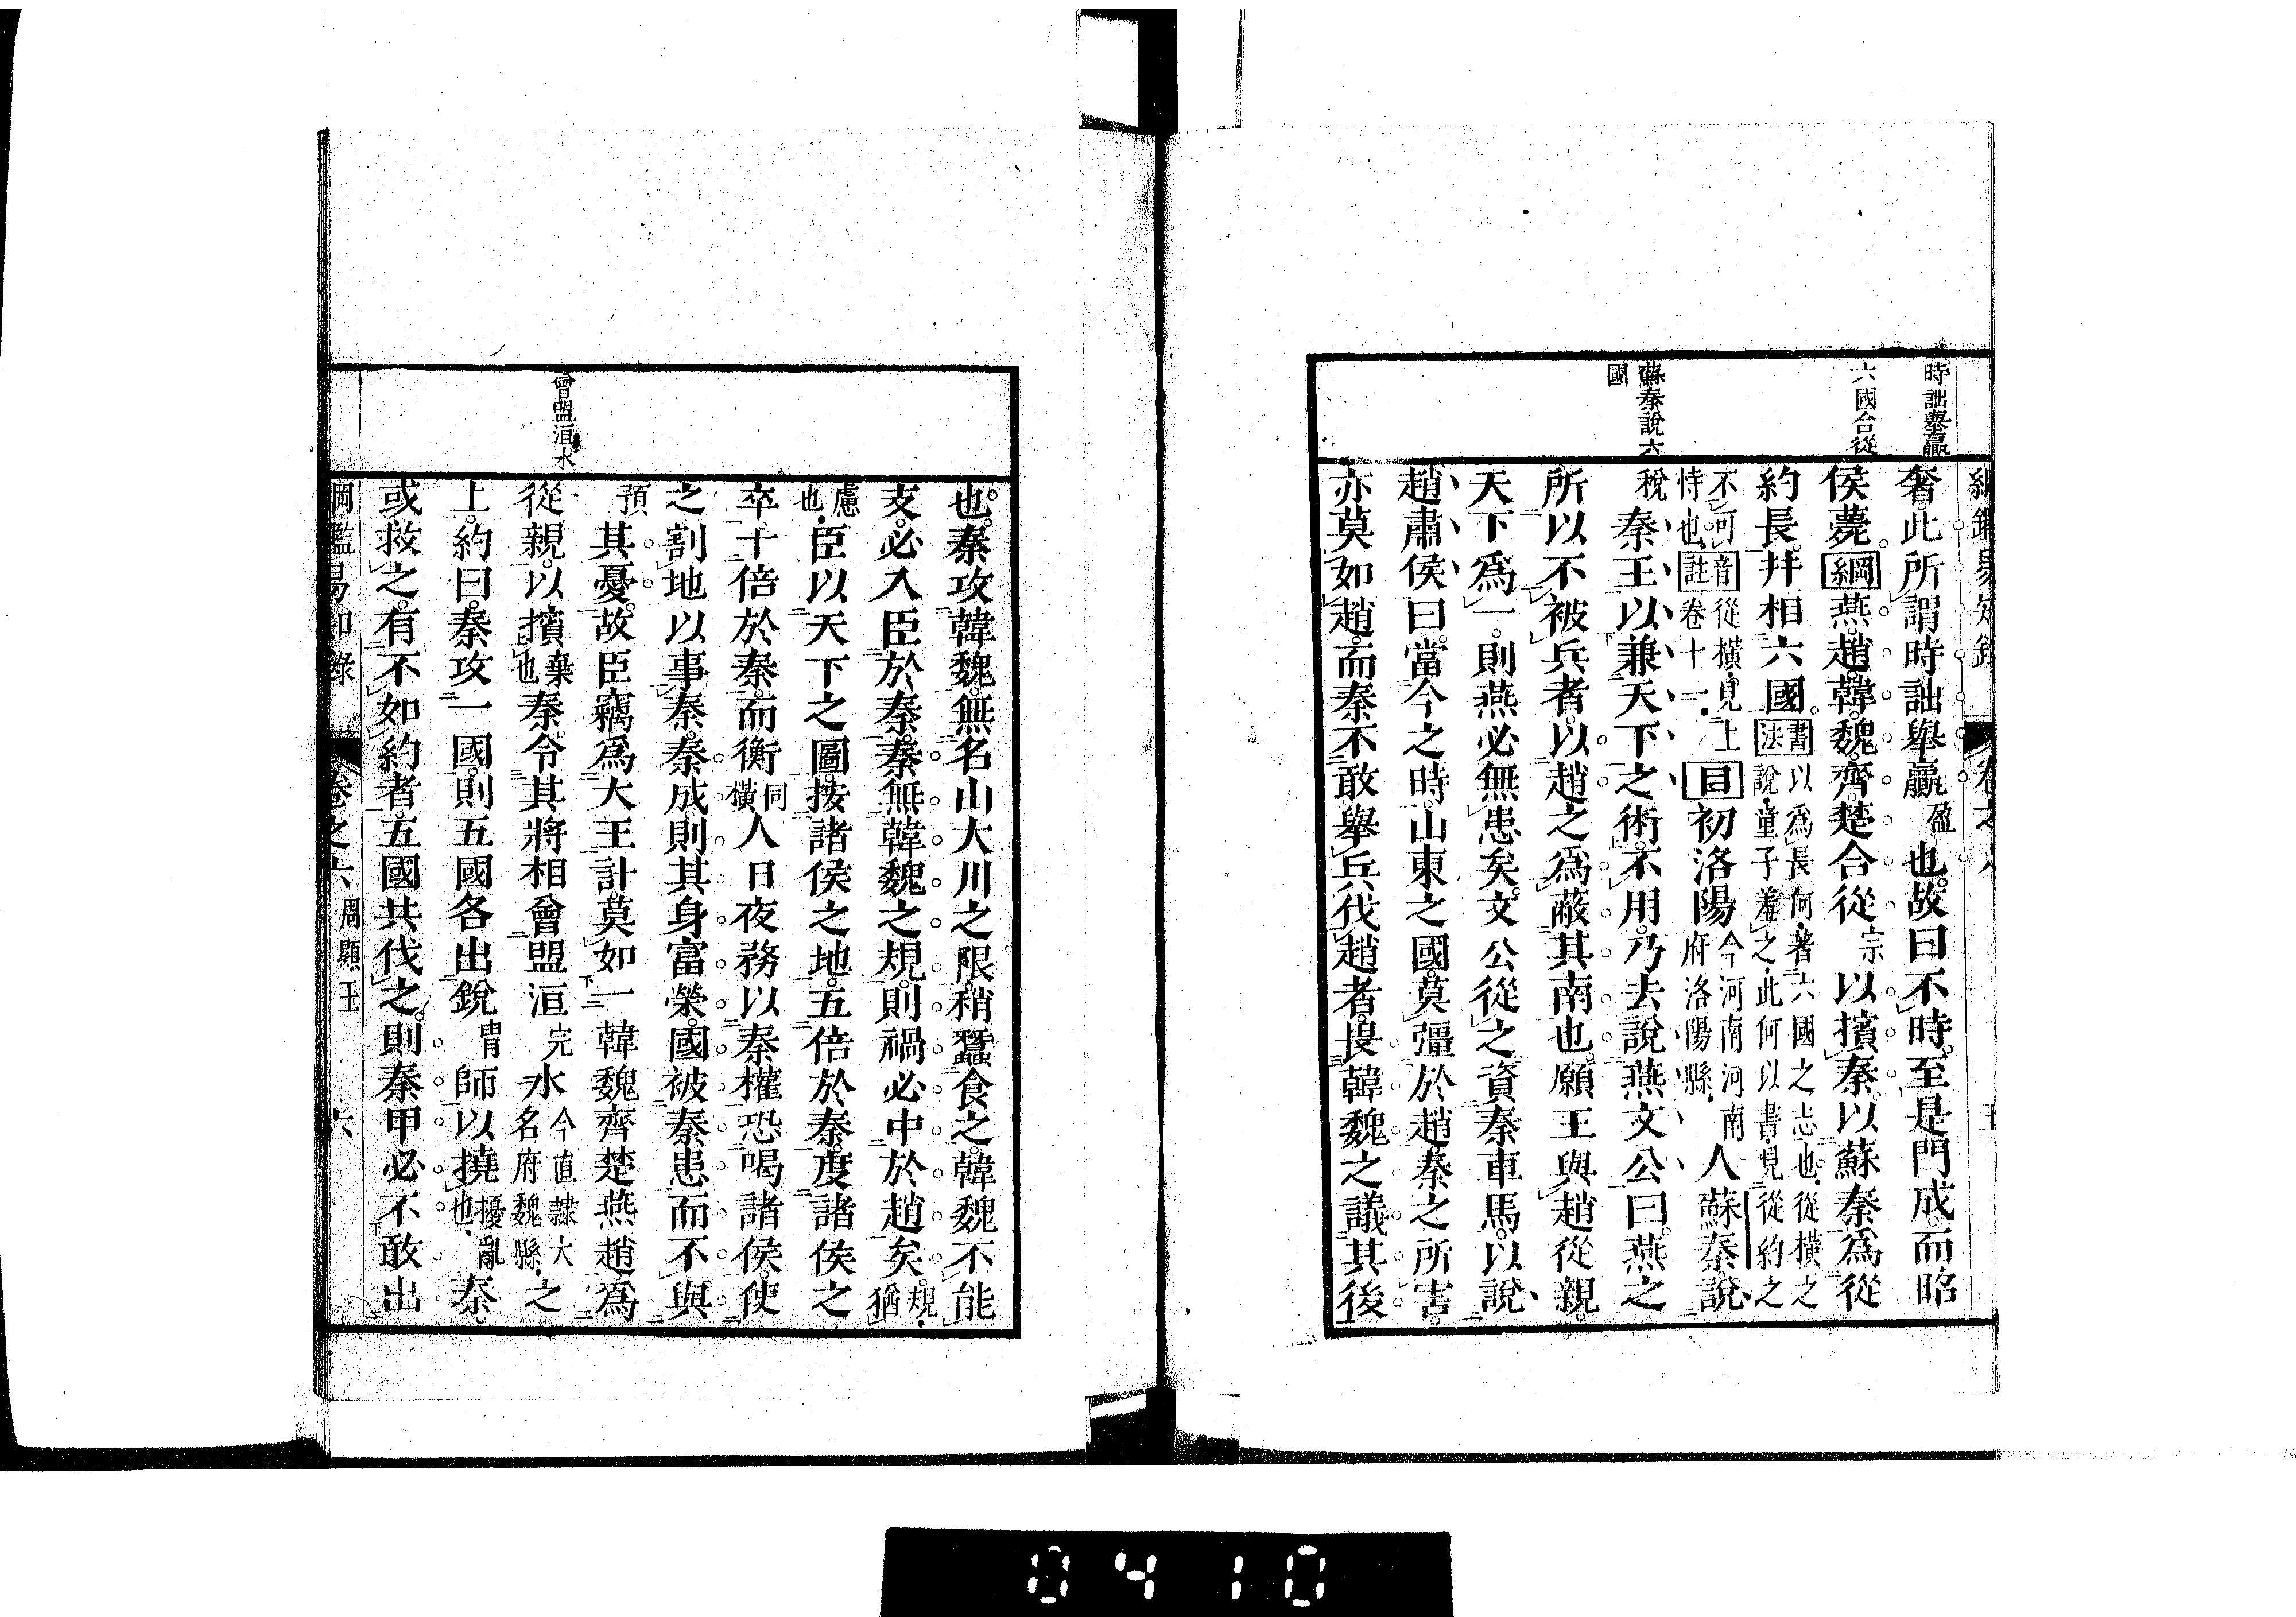 時詘舉贏
六國合從
蘇秦說六
國
奢此所謂時詘舉贏盈也故曰不時至是門成而昭
侯薨綱燕趙韓魏齊楚合從宗以擯秦以蘇秦爲從
約長幷相六國書法以爲長何著六國之志也從橫之
說童子羞之此何以書見從約之
不可音從橫見上
恃也註卷十一目初洛陽今河南河南
府洛陽縣人蘇秦說
稅秦王以兼天下之術不用乃去說燕文公曰燕之
所以不被兵者以趙之爲蔽其南也願王與趙從親
天下爲一則燕必無患矣文公從之資秦車馬以說
趙肅侯曰當今之時山東之國莫彊於趙秦之所害
亦莫如趙而秦不敢舉兵伐趙者畏韓魏之議其後
會盟洹水
也秦攻韓魏無名山大川之限稍蠶食之韓魏不能
支必入臣於秦秦無韓魏之規則禍必中於趙矣規
猶
慮
也臣以天下之圖按諸侯之地五倍於秦度諸侯之
卒十倍於秦而衡同
橫人日夜務以秦權恐喝諸侯使
之割地以事秦秦成則其身富榮國被秦患而不與
預其憂故臣竊爲大王計莫如一韓魏齊楚燕趙爲
從親以擯棄
也秦令其將相會盟洹完水今直隷大
名府魏縣之
上約曰秦攻一國則五國各出銳胄師以撓擾亂
也秦
或救之有不如約者五國共伐之則秦甲必不敢出
綱鑑易知錄 卷之六 周顯王 六